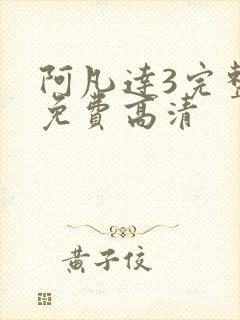 阿凡達3完整
免費高清
黄子佼